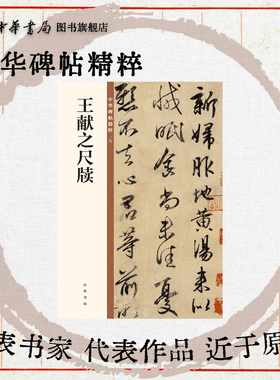 中華書局 图书旗舰店
华碑帖精粹
王献之尺牍
中华碑帖精粹
中华书局
新婦服地黄湯来似
減眠食尚未佳憂
懸不去心君等前所
表书家 代表作品 近于原